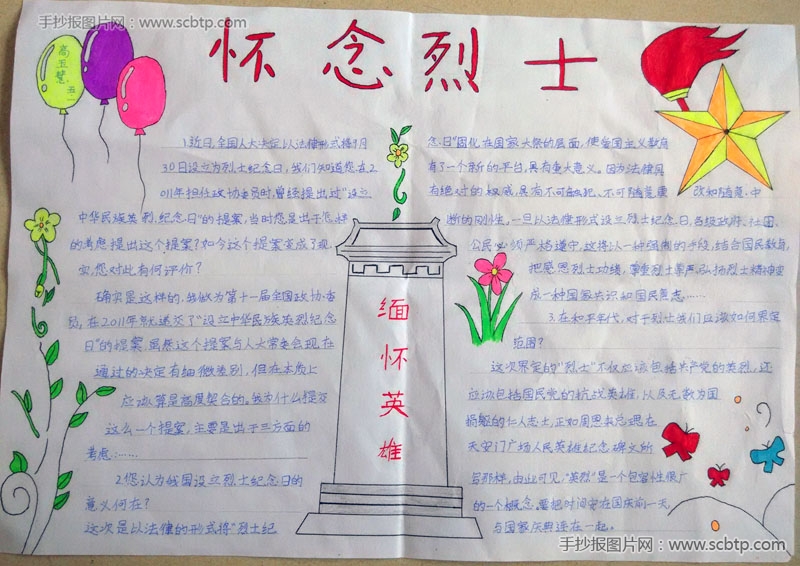 手抄报图片网：www.scbtp.com
怀念烈士
高玉慧 五一
1.近日,全国人大决定以法律形式将9月
30日设立为烈士纪念日,我们知道您在2
011年担任政协委员时曾经提出过"设立
中华民族英烈纪念日"的提案,当时您是出于怎样
的考虑提出这个提案?如今这个提案变成了现
实,您对此有何评价?
确实是这样的,我做为第十一届全国政协委
员,在2011年就递交了"设立中华民族英烈纪念
日"的提案,虽然这个提案与人大常委会现在
通过的决定有细微差别,但在本质上
应该算是高度契合的。我为什么提交
这么一个提案,主要是出于三方面的
考虑:……
2.您认为我国设立烈士纪念日的
意义何在?
这次是以法律的形式将"烈士纪
缅怀英雄
念日"固化在国家大祭的层面,使爱国主义教育
有了一个新的平台,具有重大意义。因为法律具
有绝对的权威,具有不可触犯、不可随意更 改和随意中
断的刚性,一旦以法律形式设立烈士纪念日,各级政府、社团、
公民必须严格遵守,这将以一种强制的手段,结合国民教育,
把感恩烈士功绩,尊重烈士尊严,弘扬烈士精神变
成一种国家共识和国民意志……
3.在和平年代,对于烈士我们应该如何界定
范围?
这次界定的"烈士"不仅应该包括共产党的英烈,还
应该包括国民党的抗战英雄,以及无数为国
捐躯的仁人志士,正如周恩来总理在
天安门广场人民英雄纪念碑文所
写那样,由此可见,"英烈"是一个包容性很广
的一个概念,要把时间定在国庆前一天,
与国家庆典连在一起。
手抄报图片网：www.scbtp.com